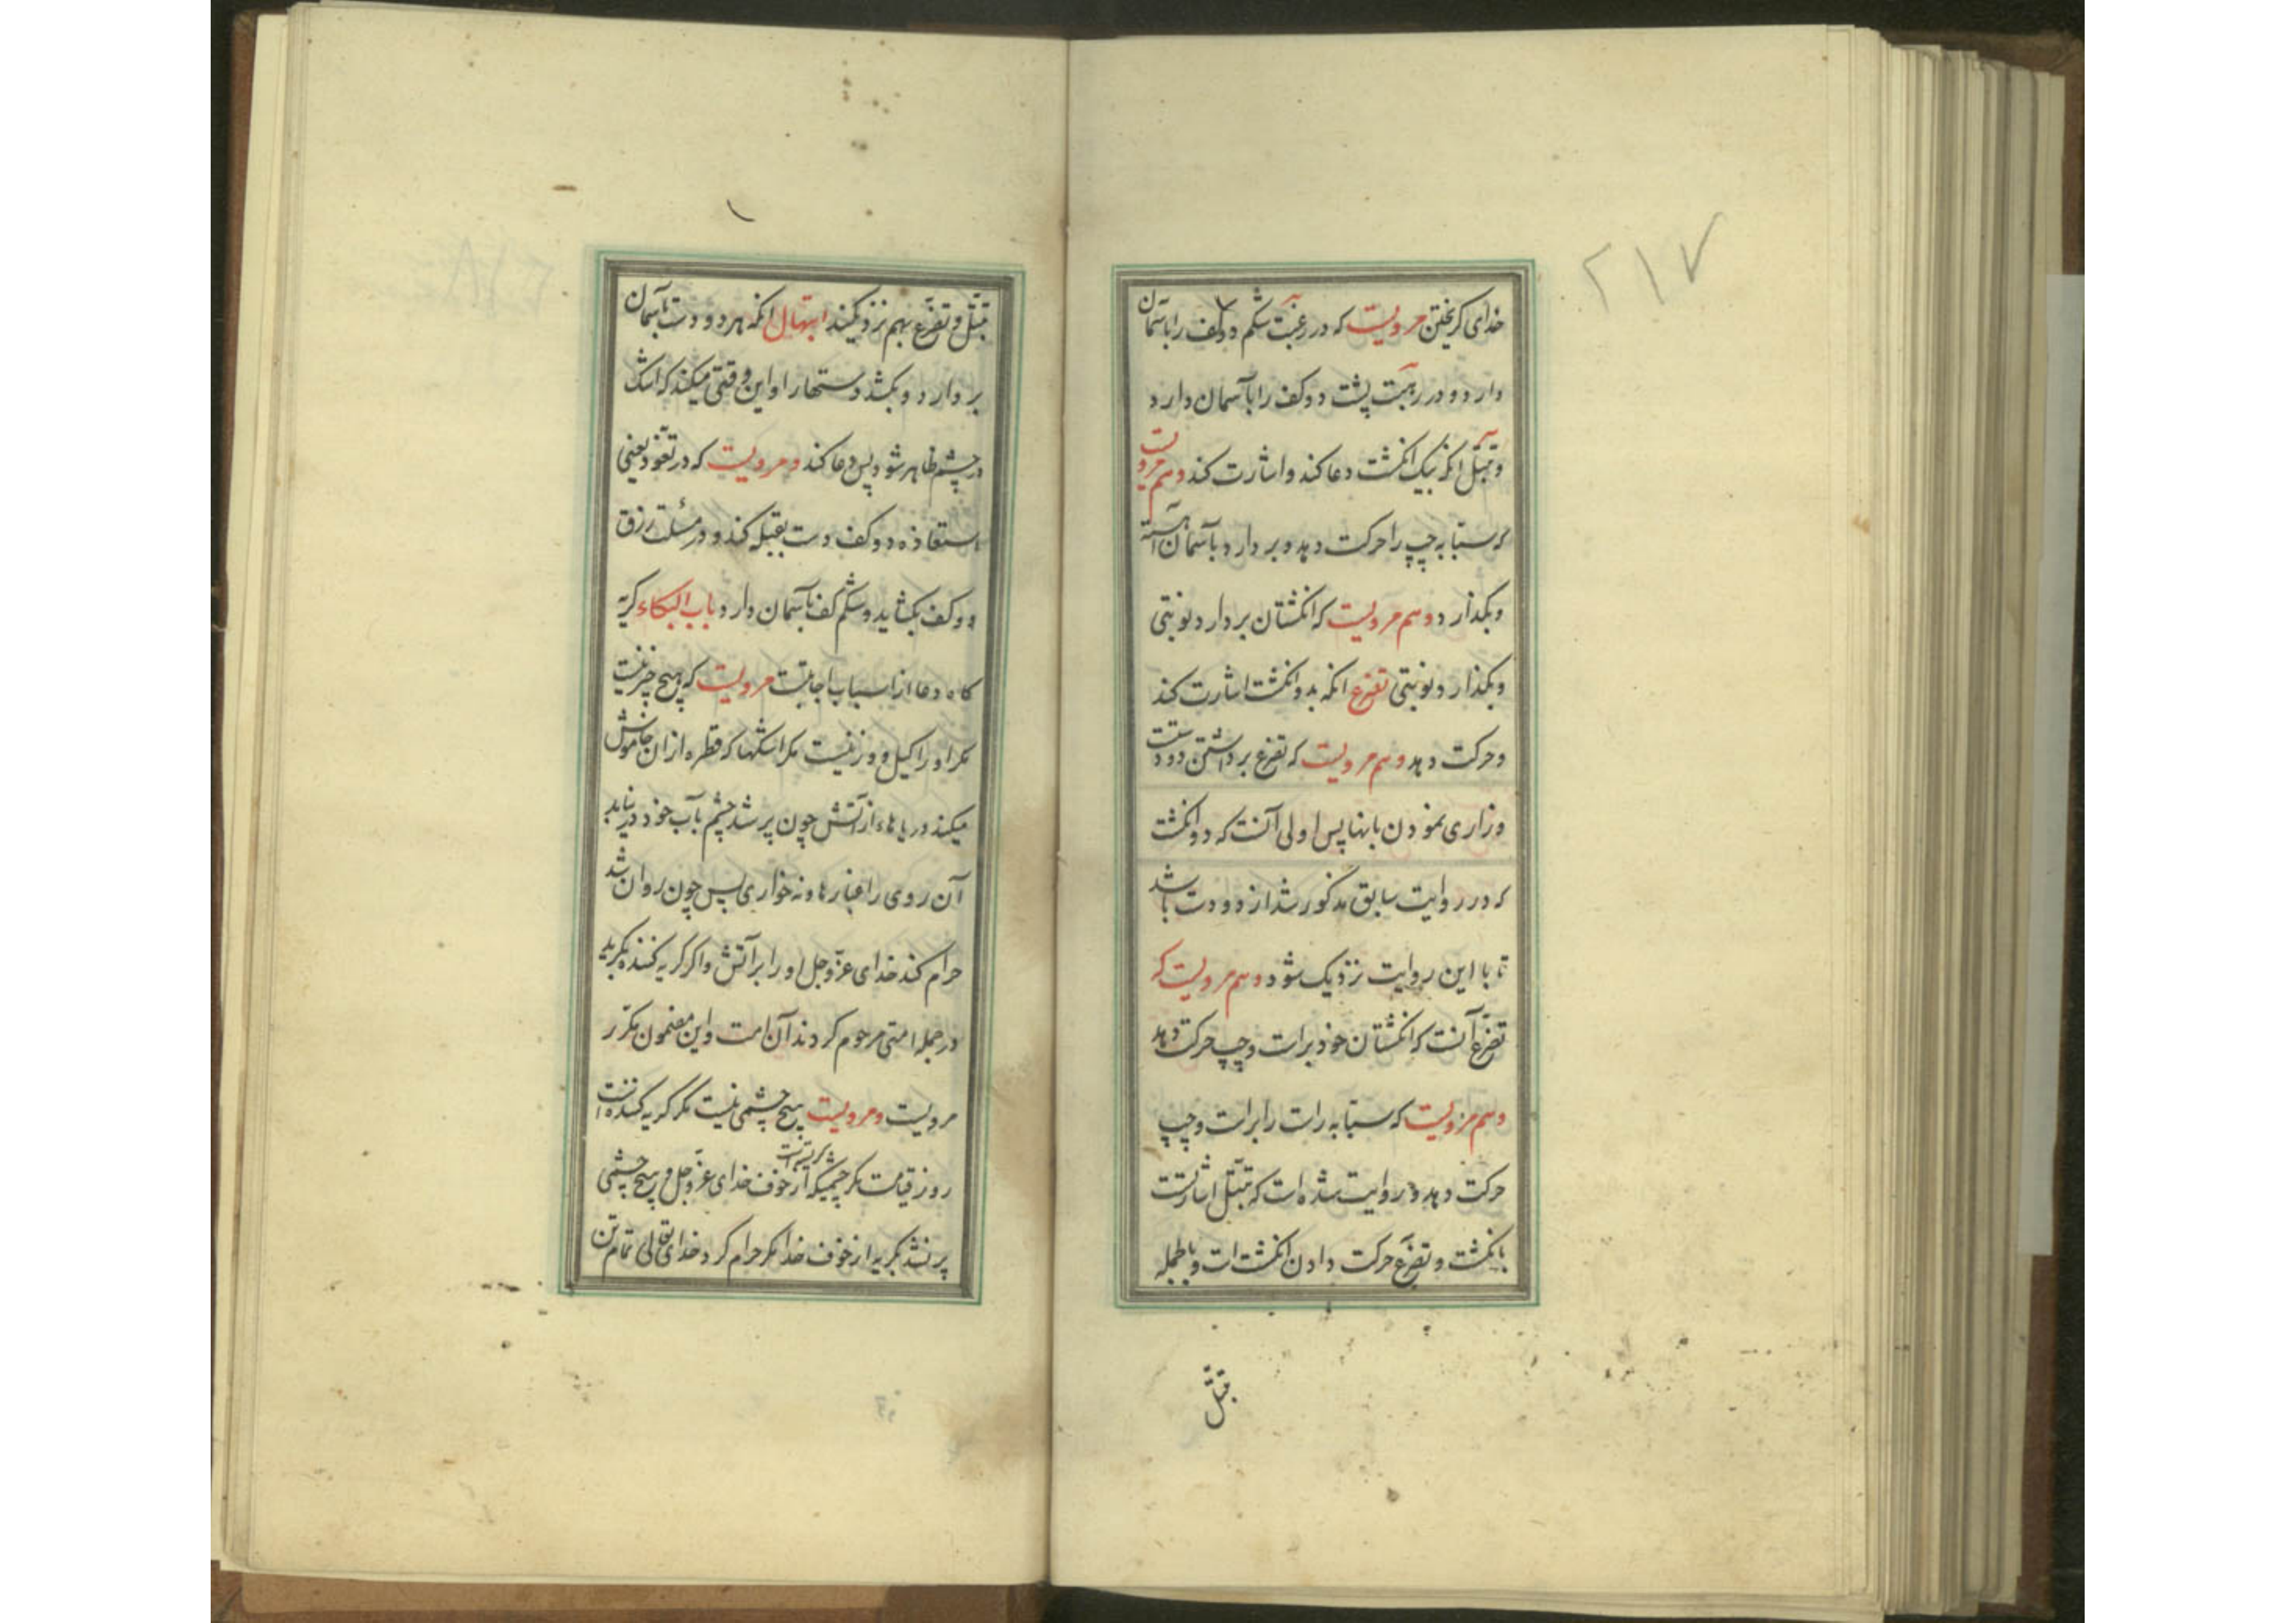 ۲۱۷
خدای کریختن مرویست که در رغبت شکم دو کف را بآسمان
دارد و در رهبت پشت دو کف را بآسمان دارد
و تبتّل انکه بیک انکشت دعا کند و اشارت کند و هم مرویست
که سبّابه چپ را حرکت دهد و بر دارد بآسمان آهسته
و بکذارد و هم مرویست که انکشتان بر دارد نوبتی
و بکذارد نوبتی تضرع انکه بدو انکشت اشارت کند
و حرکت دهد و هم مرویست که تضرع برداشتن دو دستست
و زاری نمودن بانها پس اولی آنست که دو انکشت
که در روایت سابق مذکور شد از دو دست باشد
تا با این روایت نزدیک شود و هم مرویست که
تضرّع آنست که انکشتان خود براست و چپ حرکت دهد
و هم مرویست که سبّابه راست را براست و چپ
حرکت دهد و روایت شده است که تبتّل اشارتست
بانکشت و تضرّع حرکت دادن انکشت است و بالجمله
تبتّل
تبتّل و تضرّع بهم نزدیکند ابتهال انکه هر دو دست بآسمان
بر دارد و بکشد دستها را و این وقتی میکند که اشک
در چشم ظاهر شود پس دعا کند و مرویست که در تعوّذ یعنی
استعاذه دو کف دست بقبله کند و در مسئلت رزق
دو کف بکشاید و شکم کف بآسمان دارد باب البکاء کریه
کاه دعا از اسباب اجابتست مرویست که هیچ چیز نیست
مکر او را کیل و وزنیست مکر اشکها که قطره از ان خاموش
میکند دریاهاء از آتش چون پر شد چشم بآب خود در نیابد
آن روی را غبارها و نه خواری پس چون روان شد
حرام کند خدای عزّ و جل او را بر آتش و اکر کریه کننده بکرید
در جمله امتی مرحوم کردند آن امت و این مضمون مکرّر
مرویست و مرویست هیچ چشمی نیست مکر کریه کننده است
روز قیامت مکر چشمیکه کریسته است از خوف خدای عزّ و جل و هیچ چشمی
پر نشد بکریه از خوف خدا مکر حرام کرد خدای تعالی تمام تن